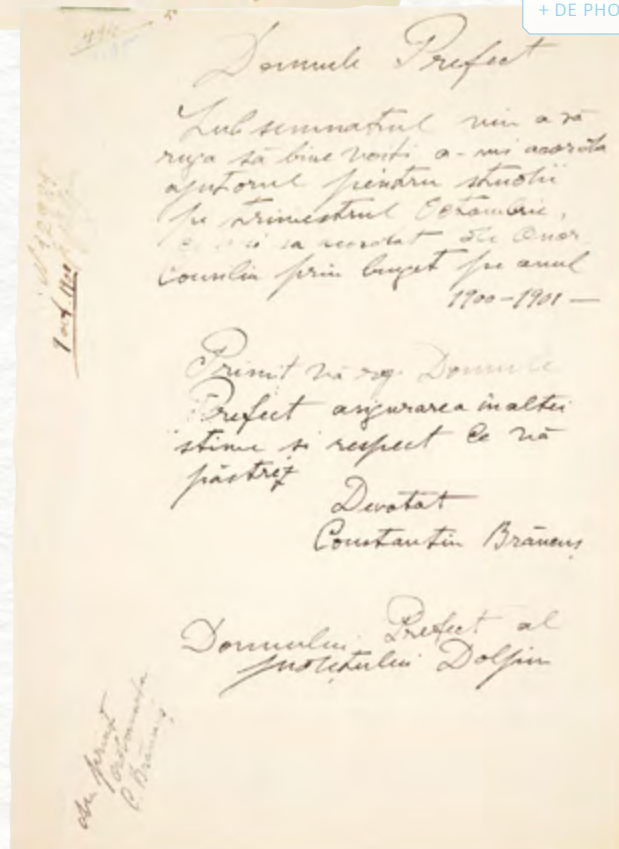 + DE PHO
Domnule Prefect
Subsemnatul vin a vă
ruga să bine voiți a-mi acorda
ajutorul pentru studii
pe trimestrul Octombrie,
ce mi sa acordat de Onor.
Consiliu prin buget pe anul
1900-1901 —
Primiț vă rog Domnule
Prefect asigurarea înaltei
stime și respect ce vă
păstrez
Devotat
Constantin Brâncuș
Domnului Prefect al
județului Doljiu
9 oct 1900
am primit
ordonanța
C. Brâncuș